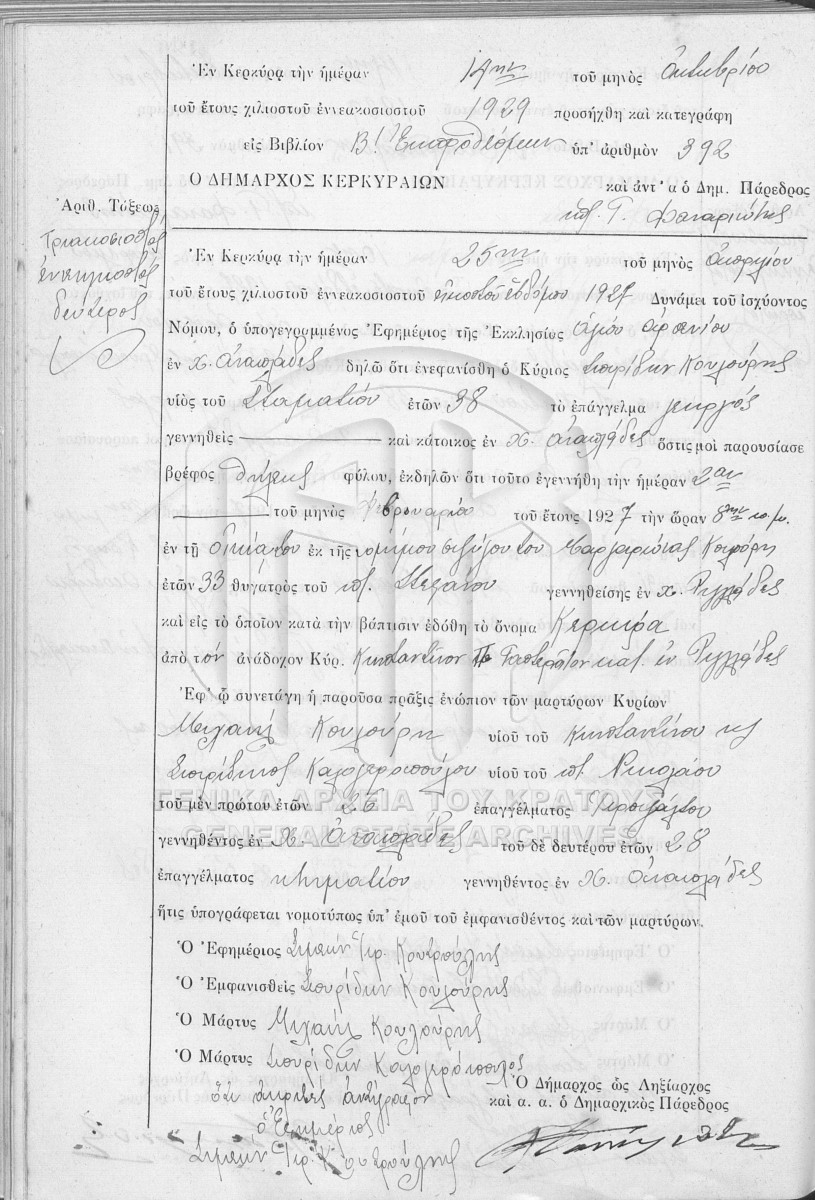 Ἐν Κερκύρᾳ τὴν ἡμέραν 14ην τοῦ μηνὸς Ὀκτωβρίου
τοῦ ἔτους χιλιοστοῦ ἐννεακοσιοστοῦ 1929 προσήχθη καὶ κατεγράφη
εἰς Βιβλίον Β! Ἐκπροθέσμων ὑπ' ἀριθμὸν 392
Ο ΔΗΜΑΡΧΟΣ ΚΕΡΚΥΡΑΙΩΝ
καὶ ἀντ' α ὁ Δημ. Πάρεδρος
Γ. Φαναριώτης
Ἀριθ. Τάξεως
Τριακοσιοστὸς
ἐνενηκοστὸς
δεύτερος
Ἐν Κερκύρᾳ τὴν ἡμέραν 25ην τοῦ μηνὸς Ἀπριλίου
τοῦ ἔτους χιλιοστοῦ ἐννεακοσιοστοῦ εἰκοστοῦ ἑβδόμου 1927 Δυνάμει τοῦ ἰσχύοντος
Νόμου, ὁ ὑπογεγραμμένος Ἐφημέριος τῆς Ἐκκλησίας Ἁγίου Ἀρσενίου
ἐν χ. Ἀναπλάδες δηλῶ ὅτι ἐνεφανίσθη ὁ Κύριος Σπυρίδων Κουλούρης
υἱὸς τοῦ Σταματίου ἐτῶν 38 τὸ ἐπάγγελμα γεωργός
γεννηθεὶς καὶ κάτοικος ἐν χ. Ἀναπλάδες ὅστις μοὶ παρουσίασε
βρέφος θήλεος φύλου, ἐκδηλῶν ὅτι τοῦτο ἐγεννήθη τὴν ἡμέραν 2αν
τοῦ μηνὸς Φεβρουαρίου τοῦ ἔτους 1927 τὴν ὥραν 8ην π.μ.
ἐν τῇ οἰκίᾳ του ἐκ τῆς νομίμου συζύγου του Μαργαρώνας
ἐτῶν 33 θυγατρὸς τοῦ ποτ. Στεφάνου γεννηθείσης ἐν χ. Ρυγγλάδες
καὶ εἰς τὸ ὁποῖον κατὰ τὴν βάπτισιν ἐδόθη τὸ ὄνομα Κέρκυρα
ἀπὸ τὸν ἀνάδοχον Κύρ. Κωνσταντῖνον κατ. ἐν Ρυγγλάδες
Ἐφ' ᾧ συνετάγη ἡ παροῦσα πρᾶξις ἐνώπιον τῶν μαρτύρων Κυρίων
Μιχαὴλ Κουλούρη υἱοῦ τοῦ Κωνσταντίνου κς
Σπυρίδωνος Καλογεροπούλου υἱοῦ τοῦ ποτ Νικολάου
ΓΕΝΙΚΑ ΑΡΧΕΙΑ ΤΟΥ ΚΡΑΤΟΥΣ
τοῦ μὲν πρώτου ἐτῶν 26 ἐπαγγέλματος Ἱεροψάλτου
GENERAL STATE ARCHIVES
γεννηθέντος ἐν χ. Ἀναπλάδες τοῦ δὲ δευτέρου ἐτῶν 28
ἐπαγγέλματος κτηματίου γεννηθέντος ἐν χ. Ἀναπλάδες
ἥτις ὑπογράφεται νομοτύπως ὑπ' ἐμοῦ τοῦ ἐμφανισθέντος καὶ τῶν μαρτύρων.
Ὁ Ἐφημέριος Συμεὼν Ἱερ. Κουτρούλης
Ὁ Ἐμφανισθεὶς Σπυρίδων Κουλούρης
Ὁ Μάρτυς Μιχαὴλ Κουλούρης
Ὁ Μάρτυς Σπυρίδων Καλογερόπουλος
Ὅτι ἀκριβὲς ἀντίγραφον
ὁ Ἐφημέριος
Συμεὼν Ἱερ. Κουτρούλης
Ὁ Δήμαρχος ὡς Ληξίαρχος
καὶ α. α. ὁ Δημαρχικὸς Πάρεδρος